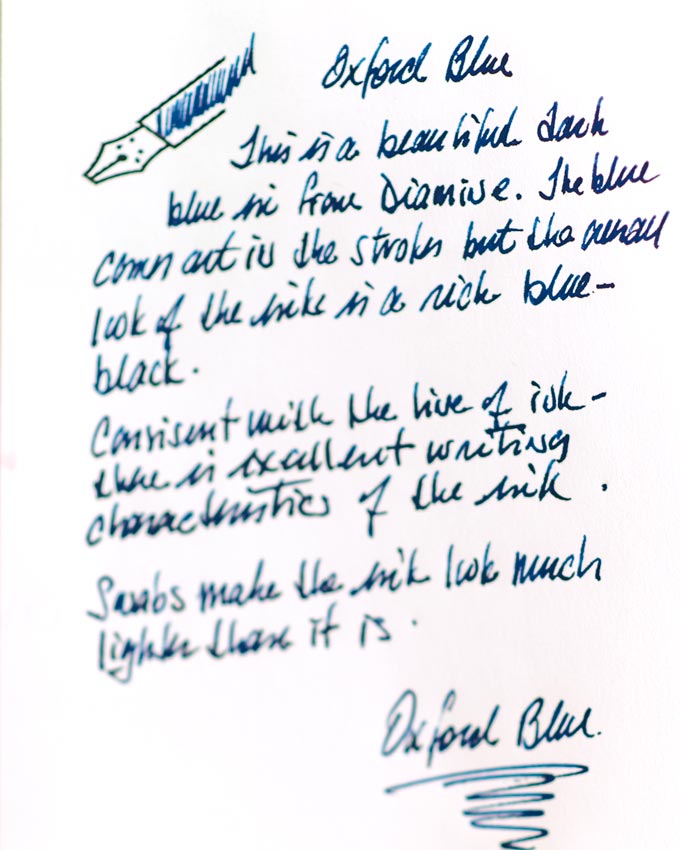 Oxford Blue
This is a beautiful dark
blue ink from Diamine. The blue
comes out in the strokes but the overall
look of the ink is a rich blue-
black.
Consisent with the line of ink -
there is excellent writing
characteristics of the ink .
Swabs make the ink look much
lighter than it is .
Oxford Blue.